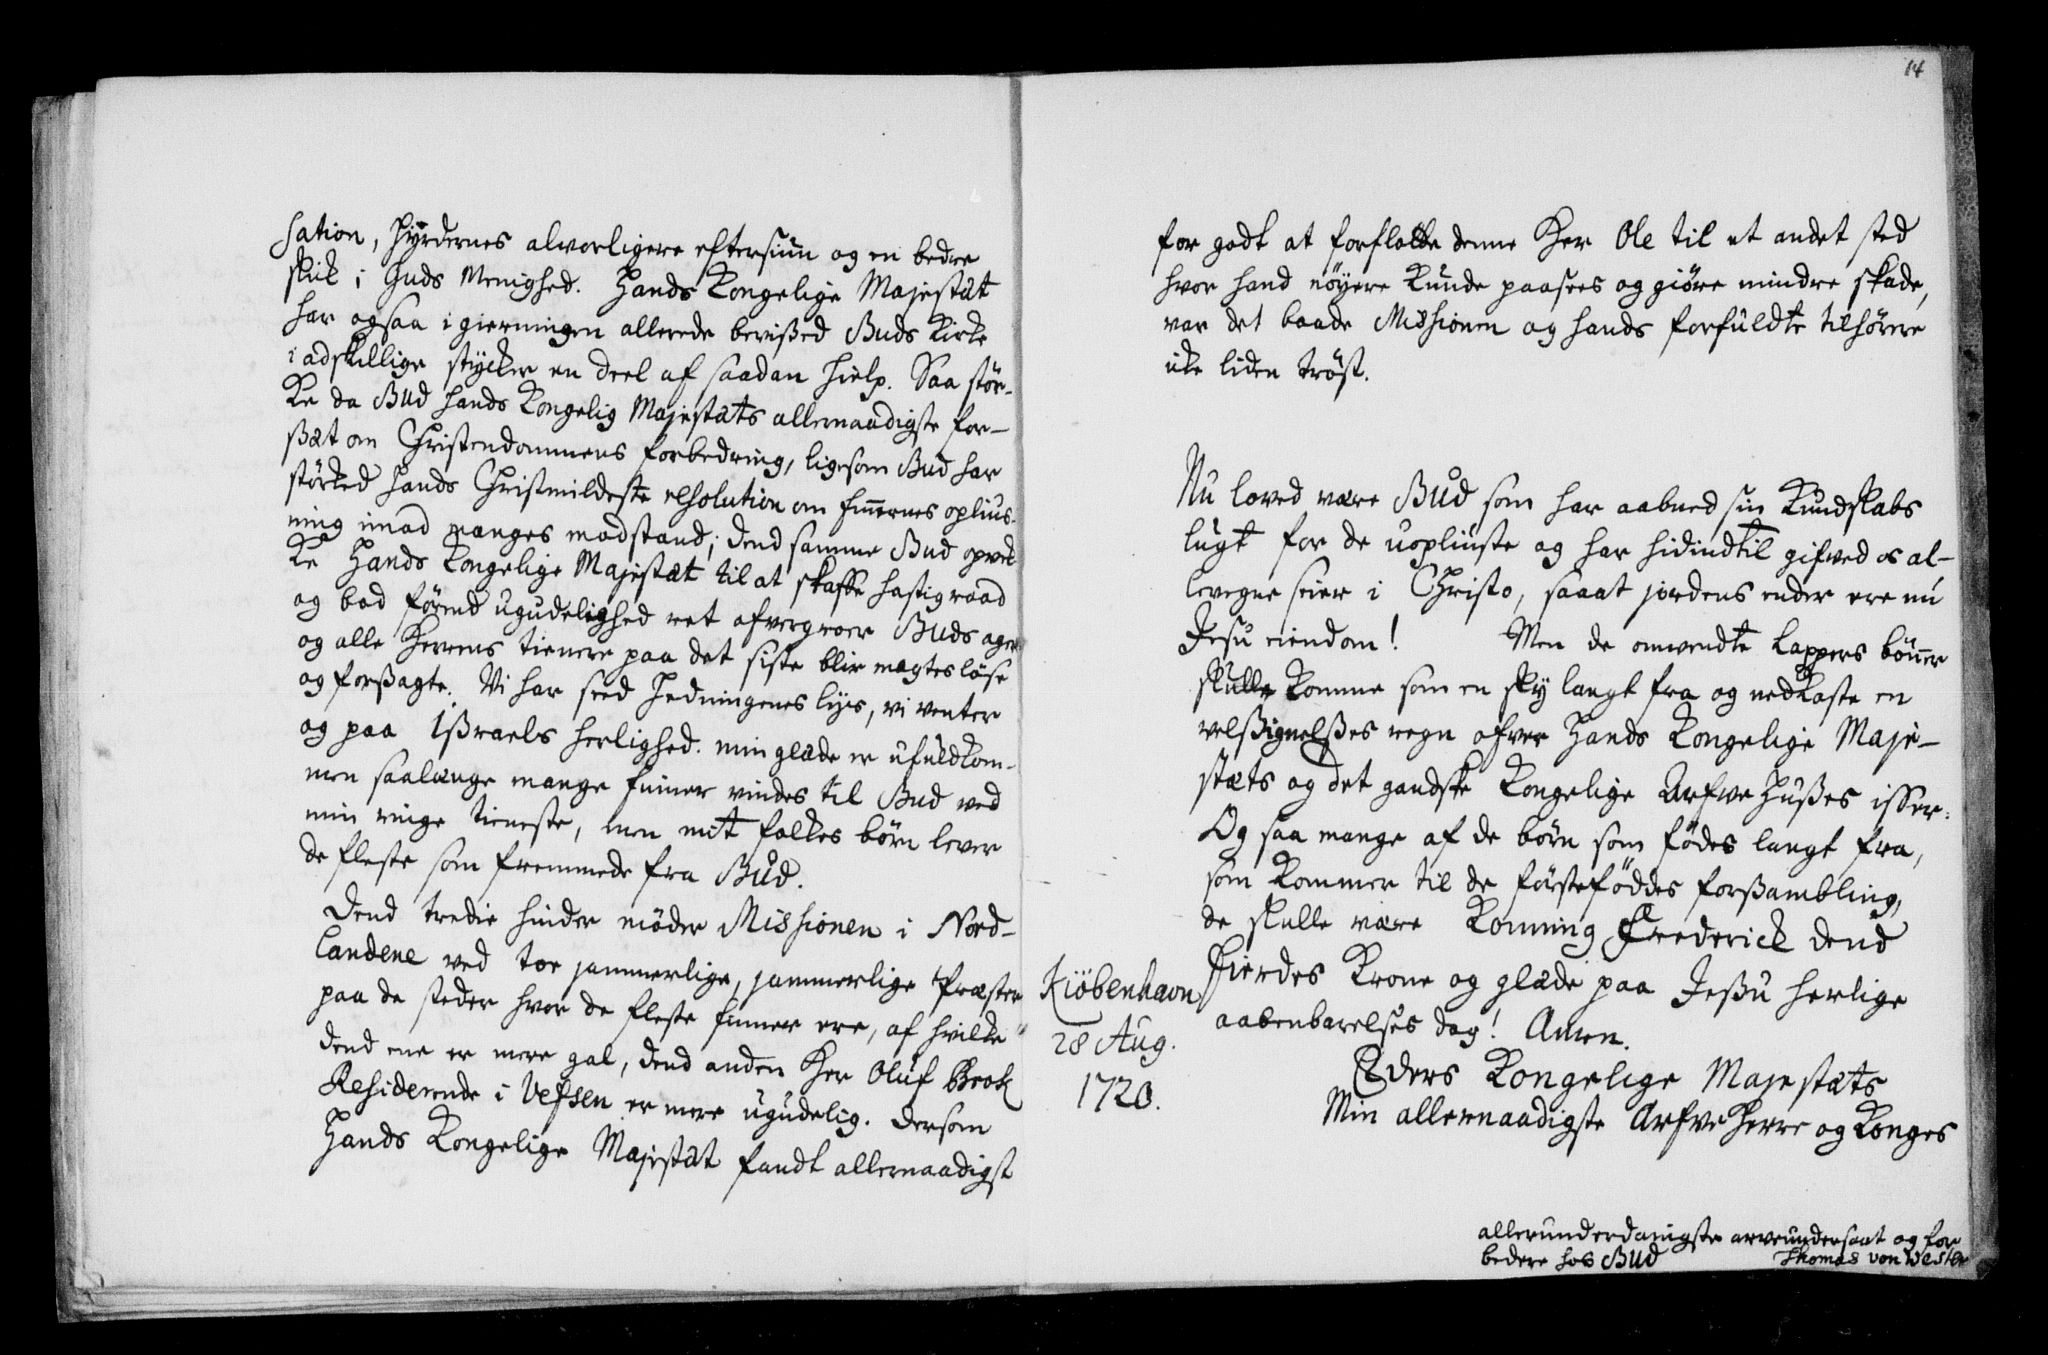 sation, Hyrdernes alvorligere eftersiun og en bedre
skik i Guds Menighed. Hands Kongelige Majestæt
har ogsaa i gierningen allerede bevißed Guds Kirke
i adskillige stycker en deel af saadan hielp. Saa stör-
ke da Gud hands Kongelig Majestæts allernaadigste for-
ßæt om Christendommens forbedring, ligesom Gud har
störked hands Christmildeste resolution om finnernes oplius-
ning imod manges modstand; dend samme Gud opvek-
ke Hands Kongelige Majestæt til at skaffe hastig raad
og bod förend ugudelighed ret ofvergroer Guds ager
og alle Herrens tienere paa det siste blir magteslöse
og forßagte. Vi har seed Hedningenes liys, vi venter
og paa Ißraels herlighed. min glæde er ufuldkom-
men saalænge mange finner vindes til Gud ved
min ringe tieneste, men mit folkes börn lever
de fleste som fremmede fra Gud.
Dend tredie hinder möder Missionen i Nord-
landene ved toe jammerlige, jammerlige Præster
paa de steder hvor de fleste finner ere, af hvilke
dend ene er mere gal, dend anden Her Oluf Brok
Residerende i Vefsen er mere ugudelig. Dersom
Hands Kongelige Majestæt fandt allernaadigst
14
for godt at forflötte denne Her Ole til et andet sted
hvor hand nöyere kunde paasees og giöre mindre skade,
var det baade Missionen og hands forfuldte tilhörere
ike liden tröst.
Nu loved være Gud som har aabned sin Kundskabs
lugt for de uopliuste og har hidindtil gifved os al-
levegne seier i Christo, saaat jordens ender ere nu
Jesu eiendom! Men de omvendte Lappers bönner
skulle komme som en sky langt fra og nedkaste en
velßignelßes regn ofver Hands Kongelige Maje-
stæts og det gandske Kongelige Arfve Hußes isser.
Og saa mange af de börn som födes langt fra,
som kommer til de förstefödes forßambling,
de skulle være Konning Frederick dend
Fierdes Krone og glæde paa Jeßu herlige
aabenbarelses dag! Amen.
Kiöbenhavn
28 Aug.
1720.
Eders Kongelige Majestæts
Min allernaadigste Arfve Herre og Konges
allerunderdanigste arveundersaat og for
bedere hos Gud Thomas von Westen